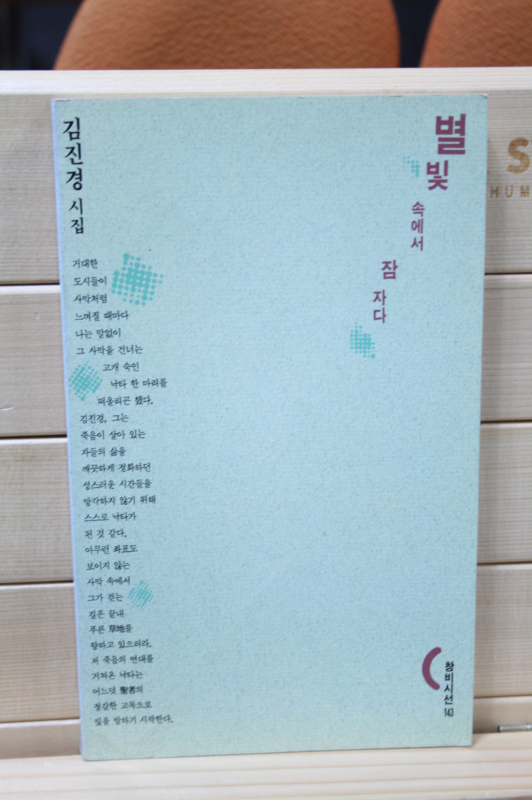 김진경 시집
별
빛
속에서
잠
자다
거대한
도시들이
사막처럼
느껴질 때마다
나는 말없이
그 사막을 건너는
고개 숙인
낙타 한 마리를
떠올리곤 했다.
김진경, 그는
죽음이 살아 있는
자들의 삶을
깨끗하게 정화하던
성스러운 시간들을
망각하지 않기 위해
스스로 낙타가
된 것 같다.
아무런 좌표도
보이지 않는
사막 속에서
그가 걷는
길은 끝내
푸른 草地를
향하고 있으리라.
저 죽음의 연대를
거쳐온 낙타는
어느덧 聖者의
정갈한 고독으로
빛을 말하기 시작한다.
창비시선
143
S
HUM